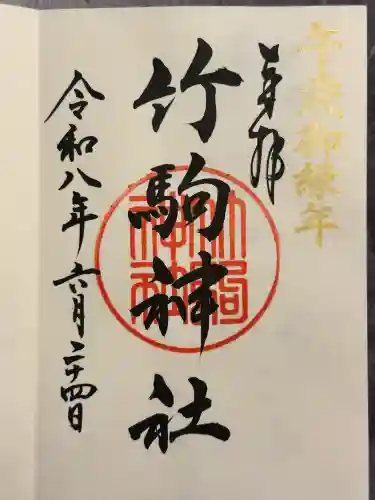 午歳御縁年
奉拝
竹駒神社
竹駒神社
令和八年六月二十四日